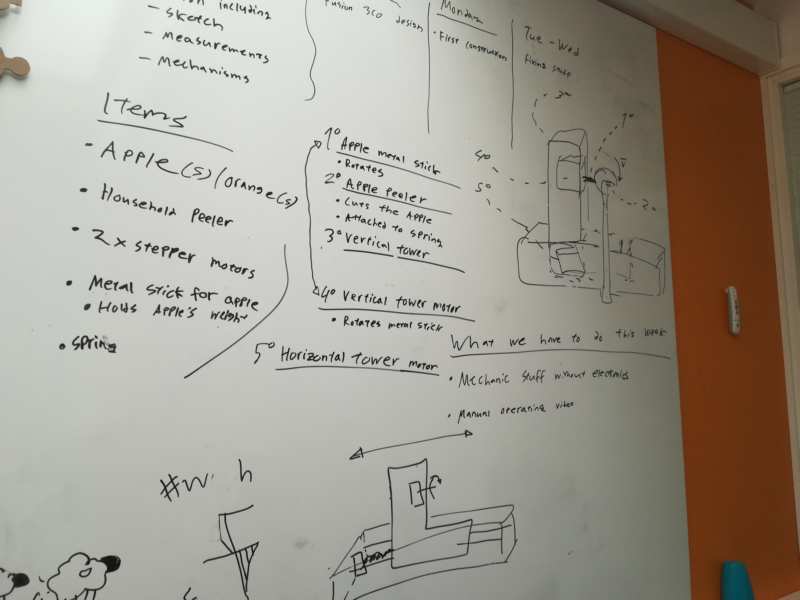 including
- sketch
- measurements
- Mechanisms
Fusion 360 design
Monday
• First construction
Tue - Wed
Items
• Apple(s)/orange(s)
• Household Peeler
• 2x stepper motors
• Metal stick for apple
• Holds Apple's weight
• spring
1° Apple metal stick
• Rotates
2° Apple Peeler
• Cuts the Apple
• Attached to spring
3° Vertical tower
4° Vertical tower motor
• Rotates metal stick
5° Horizontal tower motor
3°
1°
4°
5°
2°
What we have to do this week
• Mechanic stuff without electronics
• Manual operating video